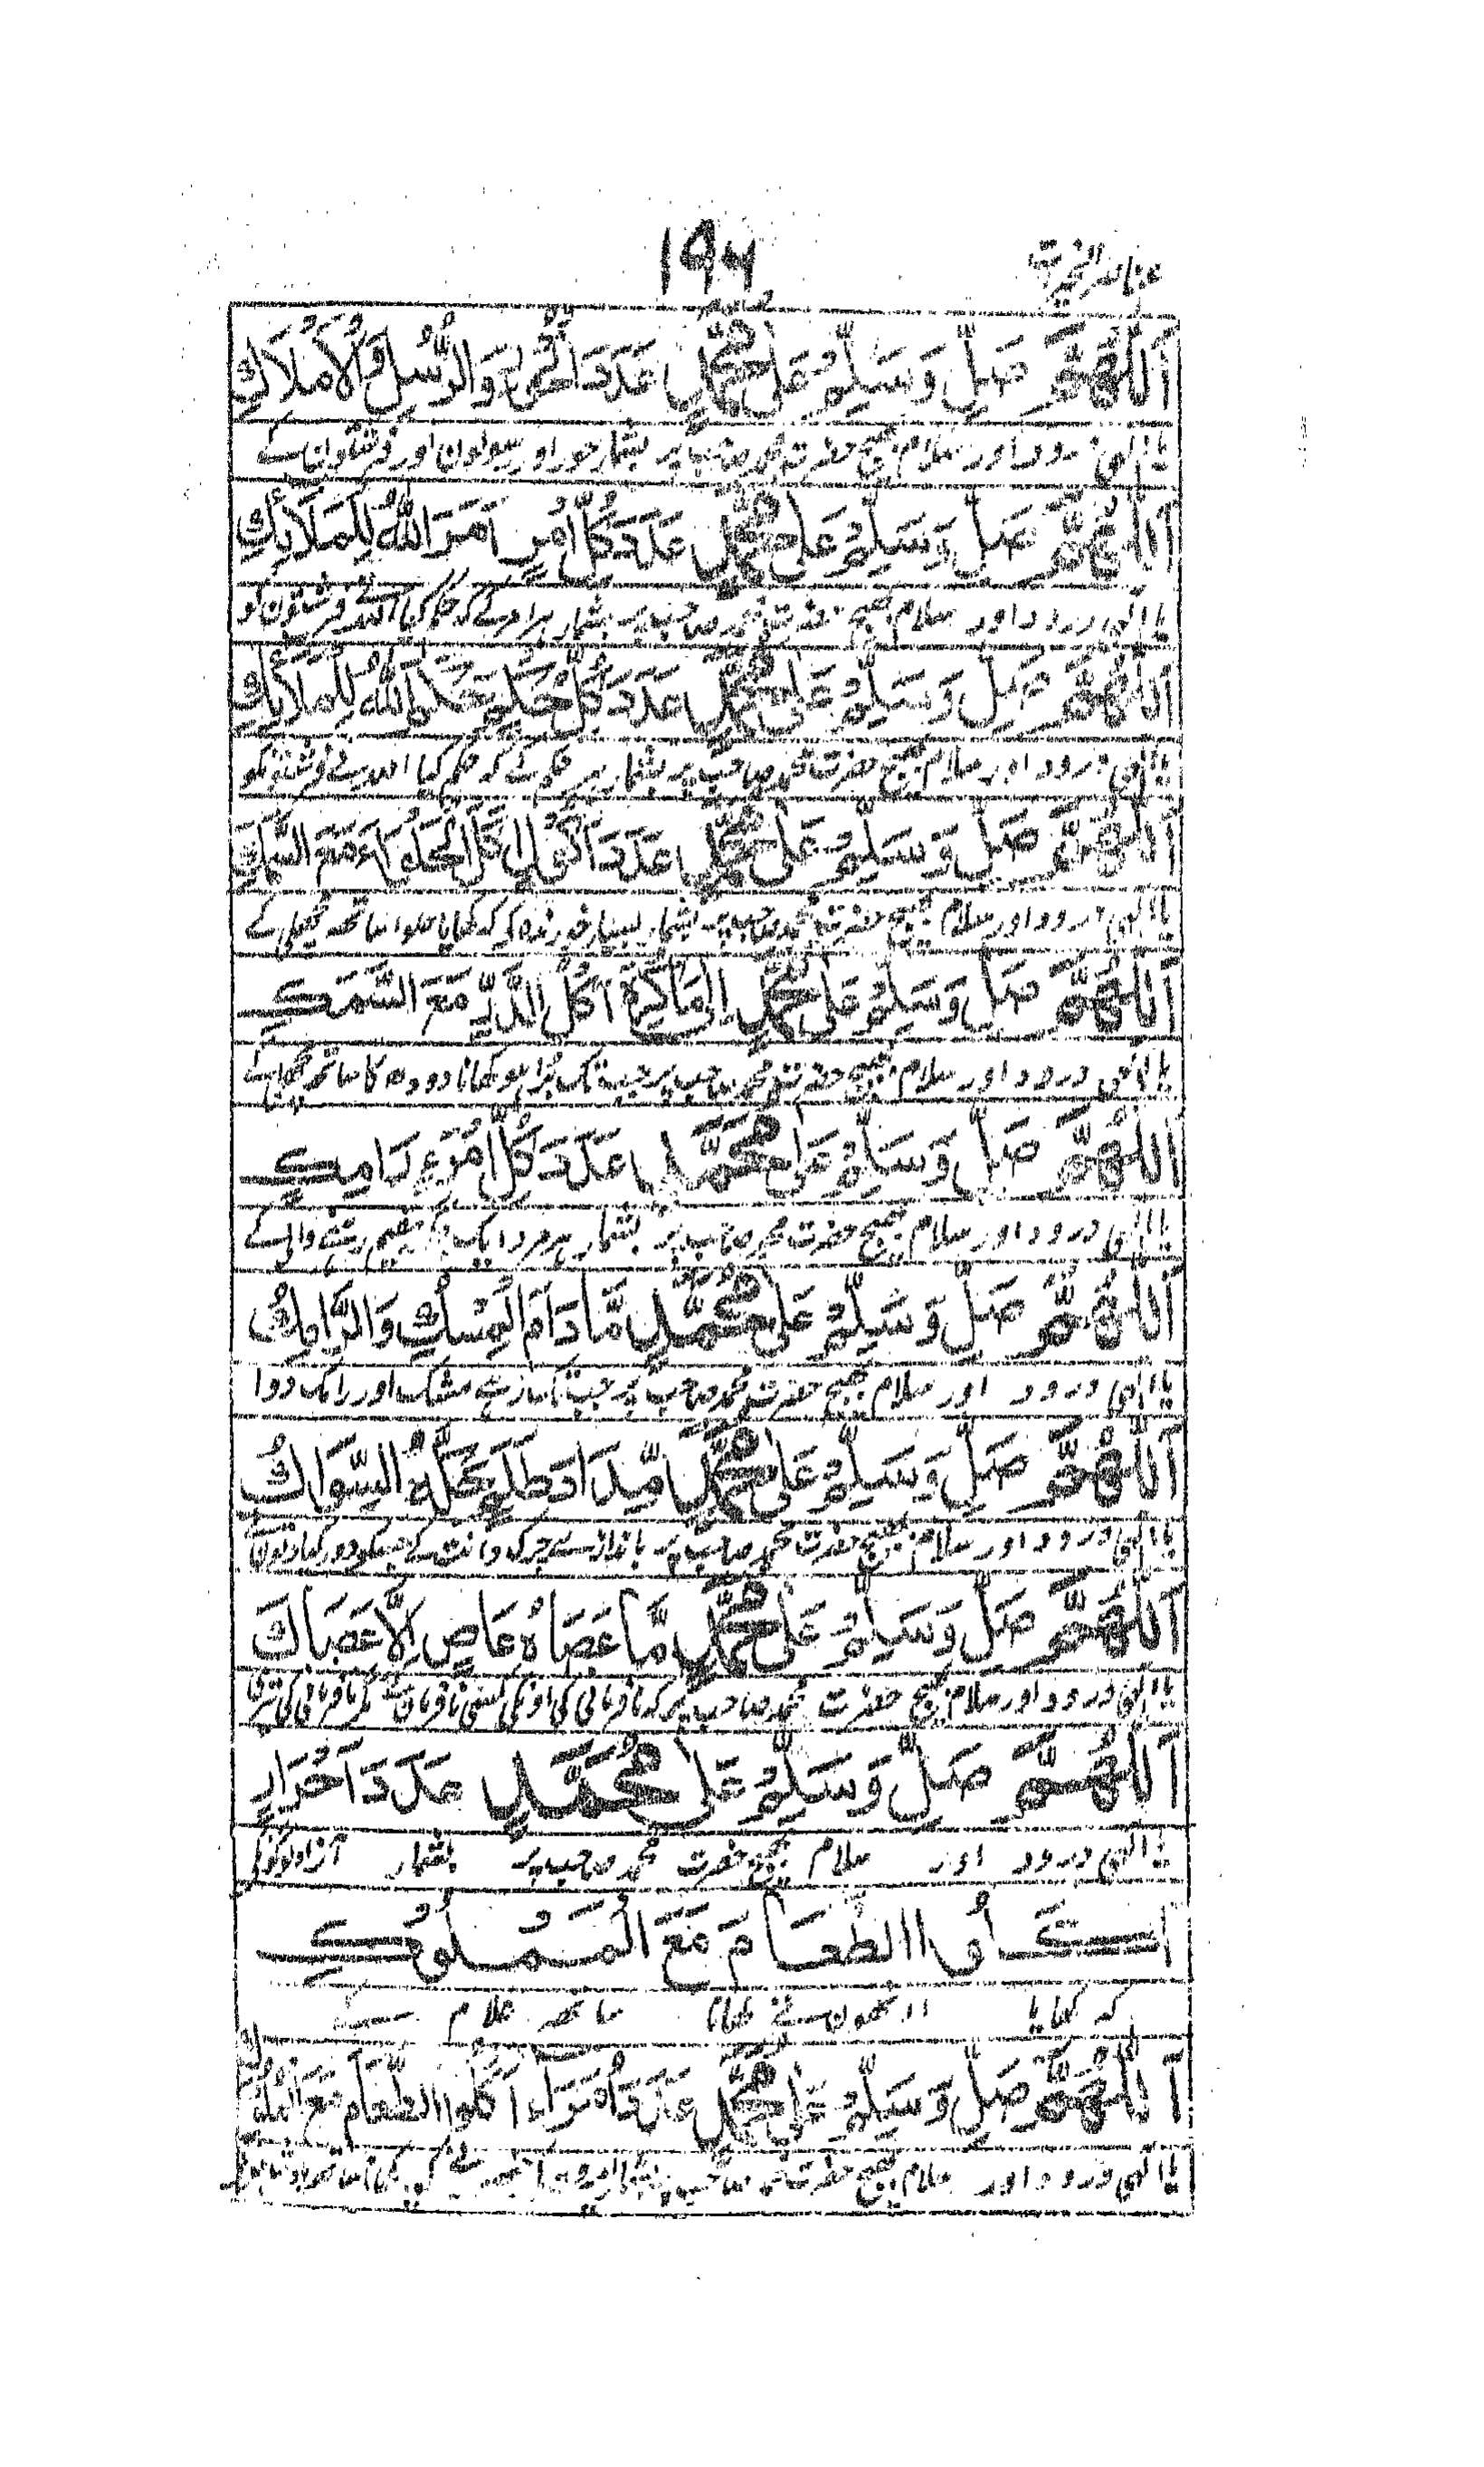 ۱۹۶
اَللّٰهُمَّ صَلِّ وَسَلِّمْ عَلٰى مُحَمَّدٍ عَدَدَ وَالرُّسُلِ وَالْاَمْلَاكِ
یا الٰہی درود اور سلام بھیج حضرت محمد صاحب پر بشمار حور اور رسولون اور فرشتون کے
اَللّٰهُمَّ صَلِّ وَسَلِّمْ عَلٰى مُحَمَّدٍ عَدَدَ كُلِّ اَمْرٍ اَمَرَ اللّٰهُ لِلْمَلَائِكِ
یا الٰہی درود اور سلام بھیج حضرت محمد صاحب پر بشمار ہر امر کے کہ حکم کیا اللہ نے فرشتون کو
اَللّٰهُمَّ صَلِّ وَسَلِّمْ عَلٰى مُحَمَّدٍ عَدَدَ كُلِّ حُكْمٍ حَكَمَ اللّٰهُ لِلْمَلَائِكِ
یا الٰہی درود اور سلام بھیج حضرت محمد صاحب پر بشمار ہر حکم کے کہ حکم کیا اللہ نے فرشتونکو
اَللّٰهُمَّ صَلِّ وَسَلِّمْ عَلٰى مُحَمَّدٍ عَدَدَ اَكُوْلٍ اَكَلَ مَعَ السَّمَكِ
یا الٰہی درود اور سلام بھیج حضرت محمد صاحب پر بشمار کہ کھایا حلوا ساتھ مچھلی کے
اَللّٰهُمَّ صَلِّ وَسَلِّمْ عَلٰى مُحَمَّدٍ اِلٰى مَا كُرِهَ اَكْلُ مَعَ السَّمَكِ
یا الٰہی درود اور سلام بھیج حضرت محمد صاحب پر جب تک برا ہو کھانا دودھ کا ساتھ مچھلی کے
اَللّٰهُمَّ صَلِّ وَسَلِّمْ عَلٰى مُحَمَّدٍ عَدَدَ كُلِّ امْرَءٍ رَامِكٍ
یا الٰہی درود اور سلام بھیج حضرت محمد صاحب پر بشمار ہر مرد ایک جگہ مقیم رہنے والے کے
اَللّٰهُمَّ صَلِّ وَسَلِّمْ عَلٰى مُحَمَّدٍ مَّا دَامَ الْمِسْكُ وَالرَّامِكُ
یا الٰہی درود اور سلام بھیج حضرت محمد صاحب پر جب تک رہے مشک اور رامک دوا
اَللّٰهُمَّ صَلِّ وَسَلِّمْ عَلٰى مُحَمَّدٍ السِّوَاكُ
یا الٰہی درود اور سلام بھیج حضرت محمد صاحب پر باندازے چرک دانت کے جسکو دور کیا
اَللّٰهُمَّ صَلِّ وَسَلِّمْ عَلٰى مُحَمَّدٍ مَّا عَصَاهُ عَاصٍ اِلَّا عَصَاكَ
یا الٰہی درود اور سلام بھیج حضرت محمد صاحب پر کہ نافرمانی کی اونکی کسی نافرمان نے مگر نافرمانی کی تیری
اَللّٰهُمَّ صَلِّ وَسَلِّمْ عَلٰى مُحَمَّدٍ عَدَدَ اَحْرَارٍ
یا الٰہی درود اور سلام بھیج حضرت محمد صاحب پر بشمار آزاد
اَكَلُوا الطَّعَامَ مَعَ الْمَمْلُوْكِ
کہ کھایا اونھون نے کھانا ساتھ غلام کے
اَللّٰهُمَّ صَلِّ وَسَلِّمْ عَلٰى مُحَمَّدٍ عَدَدَ اَكَلُوا الطَّعَامَ مَعَ
یا الٰہی درود اور سلام بھیج حضرت محمد صاحب پر